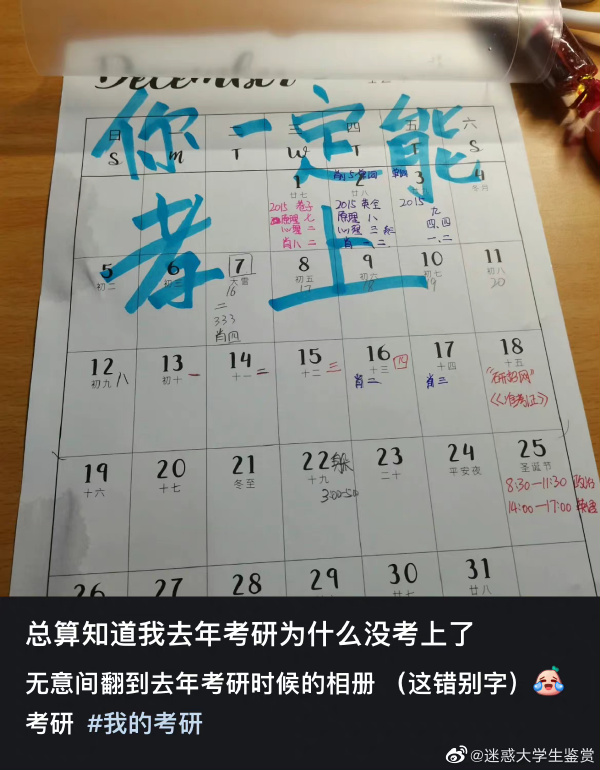 December
你一定能
孝上
日 二 三 四 五 六
S m T W T T S
1 2 3 4
廿七 廿八 冬月
2015 卷子
原理 七
心理 二
肖八 二
2015 英全
原理 八
心理 三
肖 二
2015
九
四.四
一.二
5 6 7 8 9 10 11
初二 初三 大雪 初五 初六 初七 初八
16 17 18 19 20
二
333
肖四
12 13 14 15 16 17 18
初九 初十 十一 十二 十三 十四 十五
八 一 二 三 四
肖二 肖三
“研招网”
《准考证》
19 20 21 22 23 24 25
十六 十七 冬至 十九 二十 平安夜 圣诞节
3:00-5:00
8:30—11:30 政治
14:00—17:00
26 27 28 29 30 31
廿七 廿八
总算知道我去年考研为什么没考上了
无意间翻到去年考研时候的相册 （这错别字）
考研 #我的考研
@迷惑大学生鉴赏